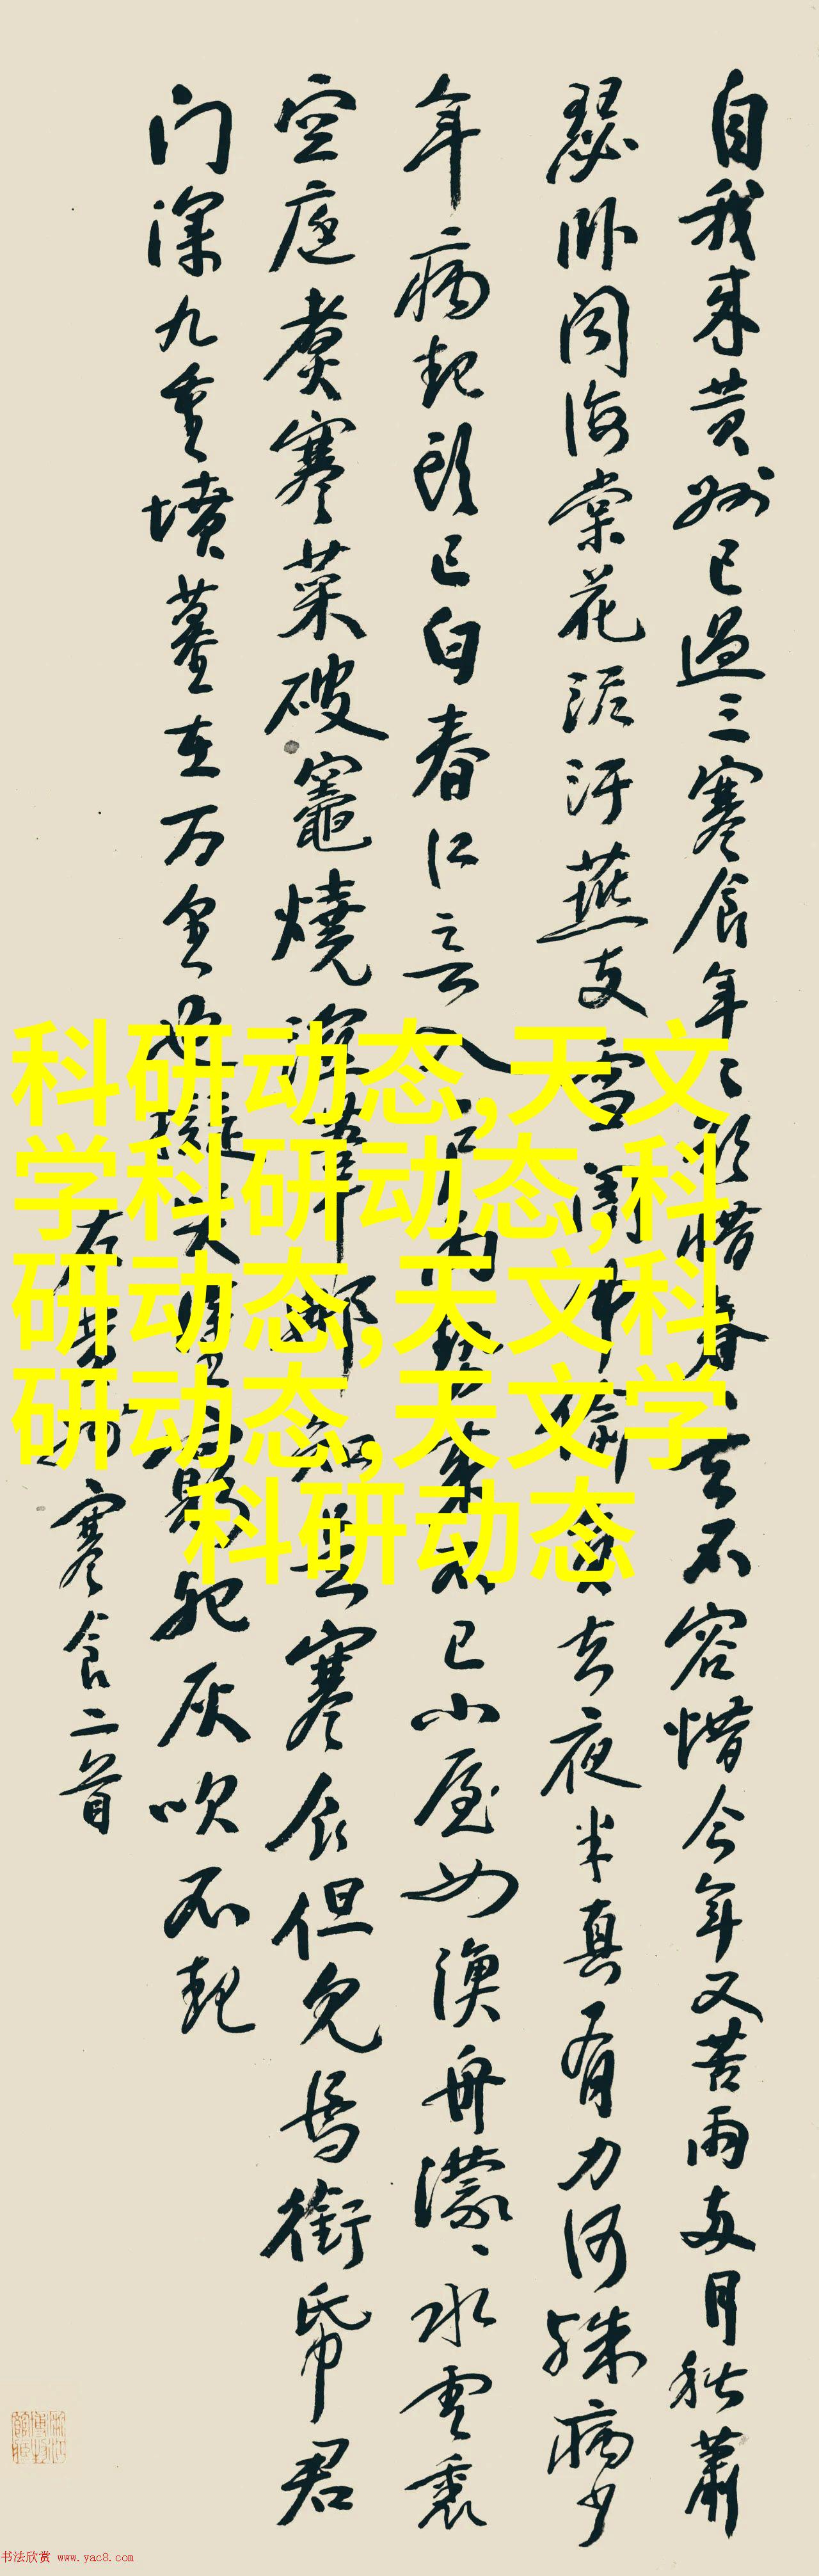 自我来黄州已過三寒食年〻欲惜春〻去不容惜今年又苦雨两月秋蕭
瑟卧聞海棠花泥汙燕支雪闇中偷負去夜半真有力何殊病少
年病起頭已白春江欲入户雨勢来不已小屋如漁舟濛〻水雲裏
空庖煮寒菜破竈燒濕葦那知是寒食但見烏銜帋君
门深九重墳墓在万里也擬哭塗窮死灰吹不起
右黄州寒食二首
科研动态,天文
学科研动态,科
研动态,天文科
研动态,天文学
科研动态
书法欣赏 www.yac8.com